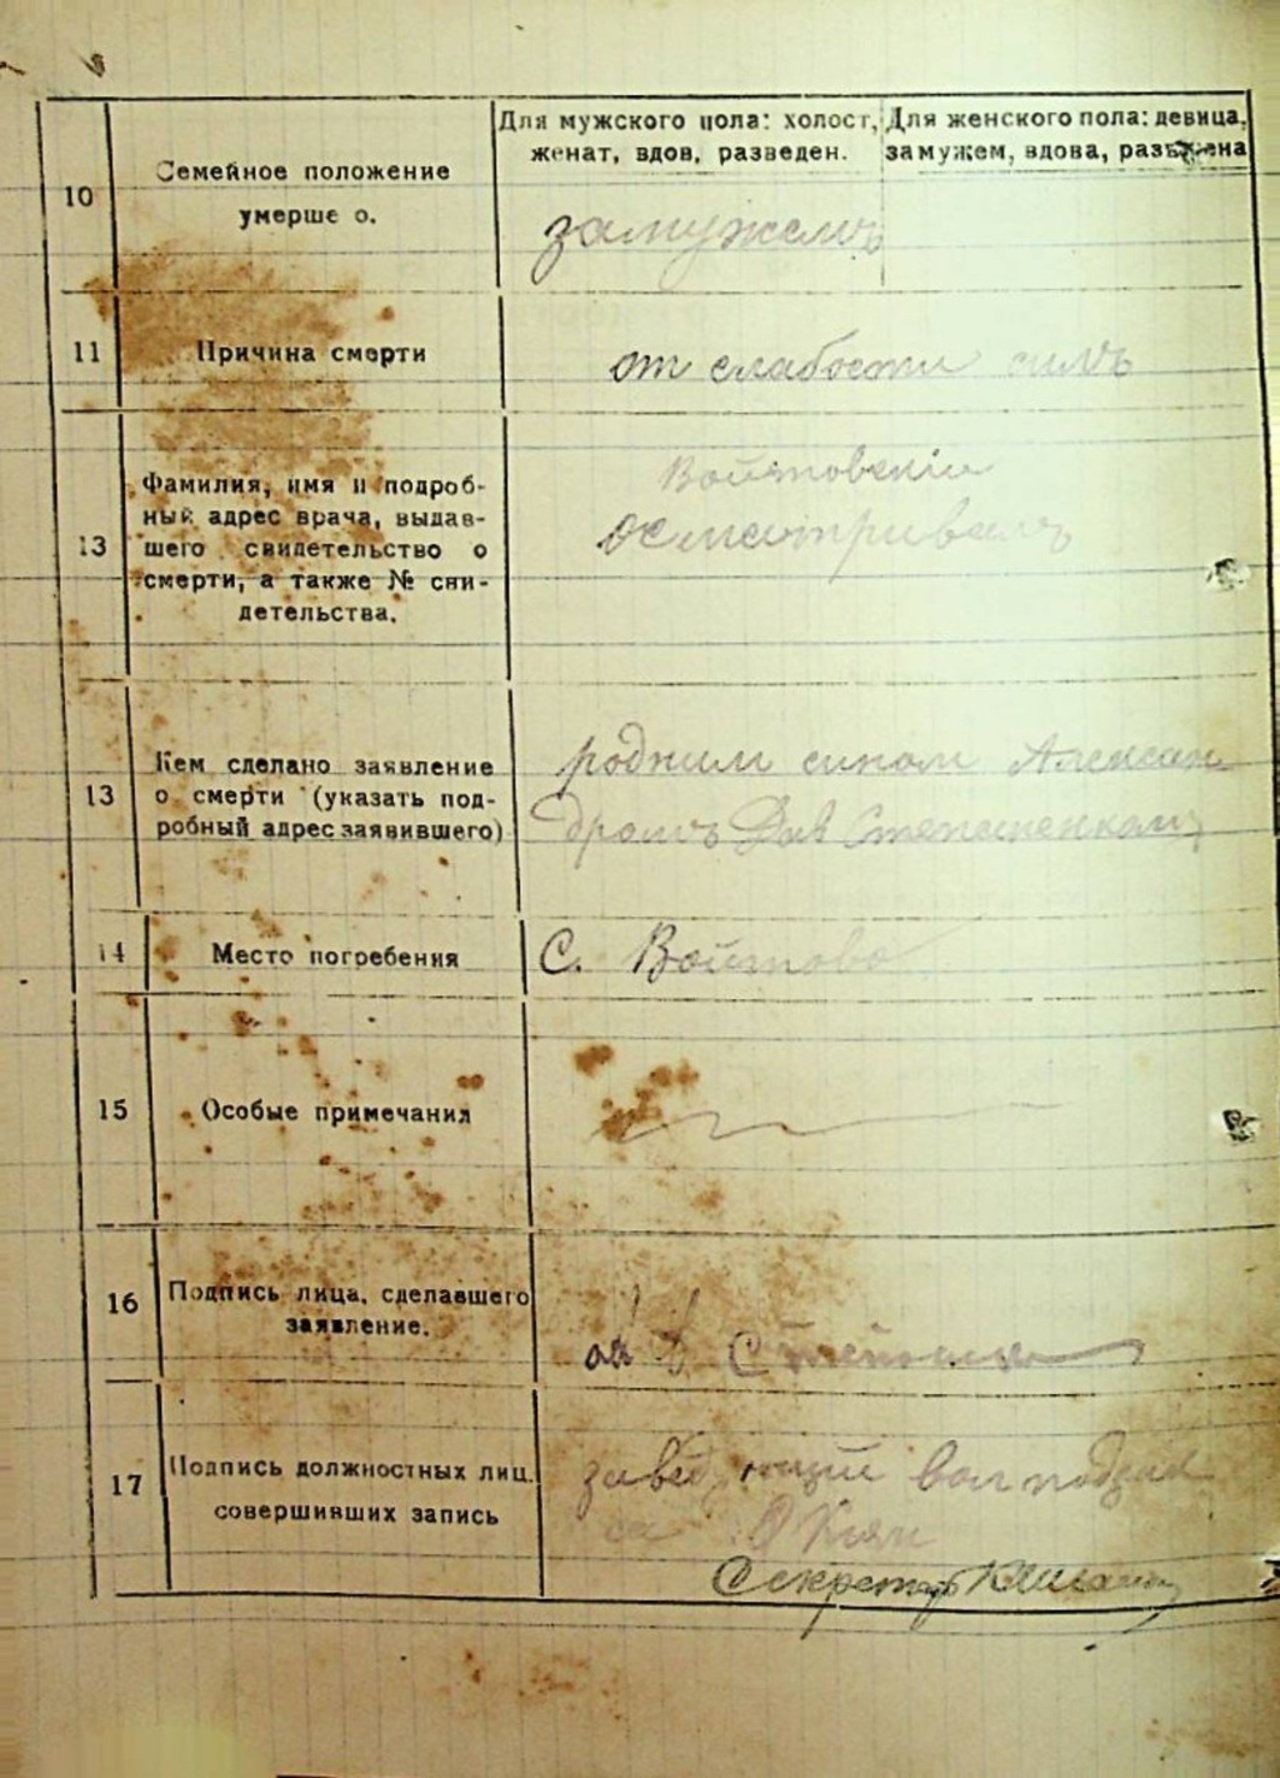 Для мужского пола: холост,
женат, вдов, разведен.
Для женского пола: девица,
замужем, вдова, разведена
10
Семейное положение
умерше о.
замужемъ
11
Причина смерти
от слабости силъ
13
Фамилия, имя и подроб-
ный адрес врача, выдав-
шего свидетельство о
смерти, а также № сви-
детельства.
осматривалъ
13
Кем сделано заявление
о смерти (указать под-
робный адрес заявившего)
родним сином Алексан
дромъ Дав Степаненкомъ
14
Место погребения
С. Войтово
15
Особые примечания
16
Подпись лица, сделавшего
заявление.
17
Подпись должностных лиц,
совершивших запись
Секретарь